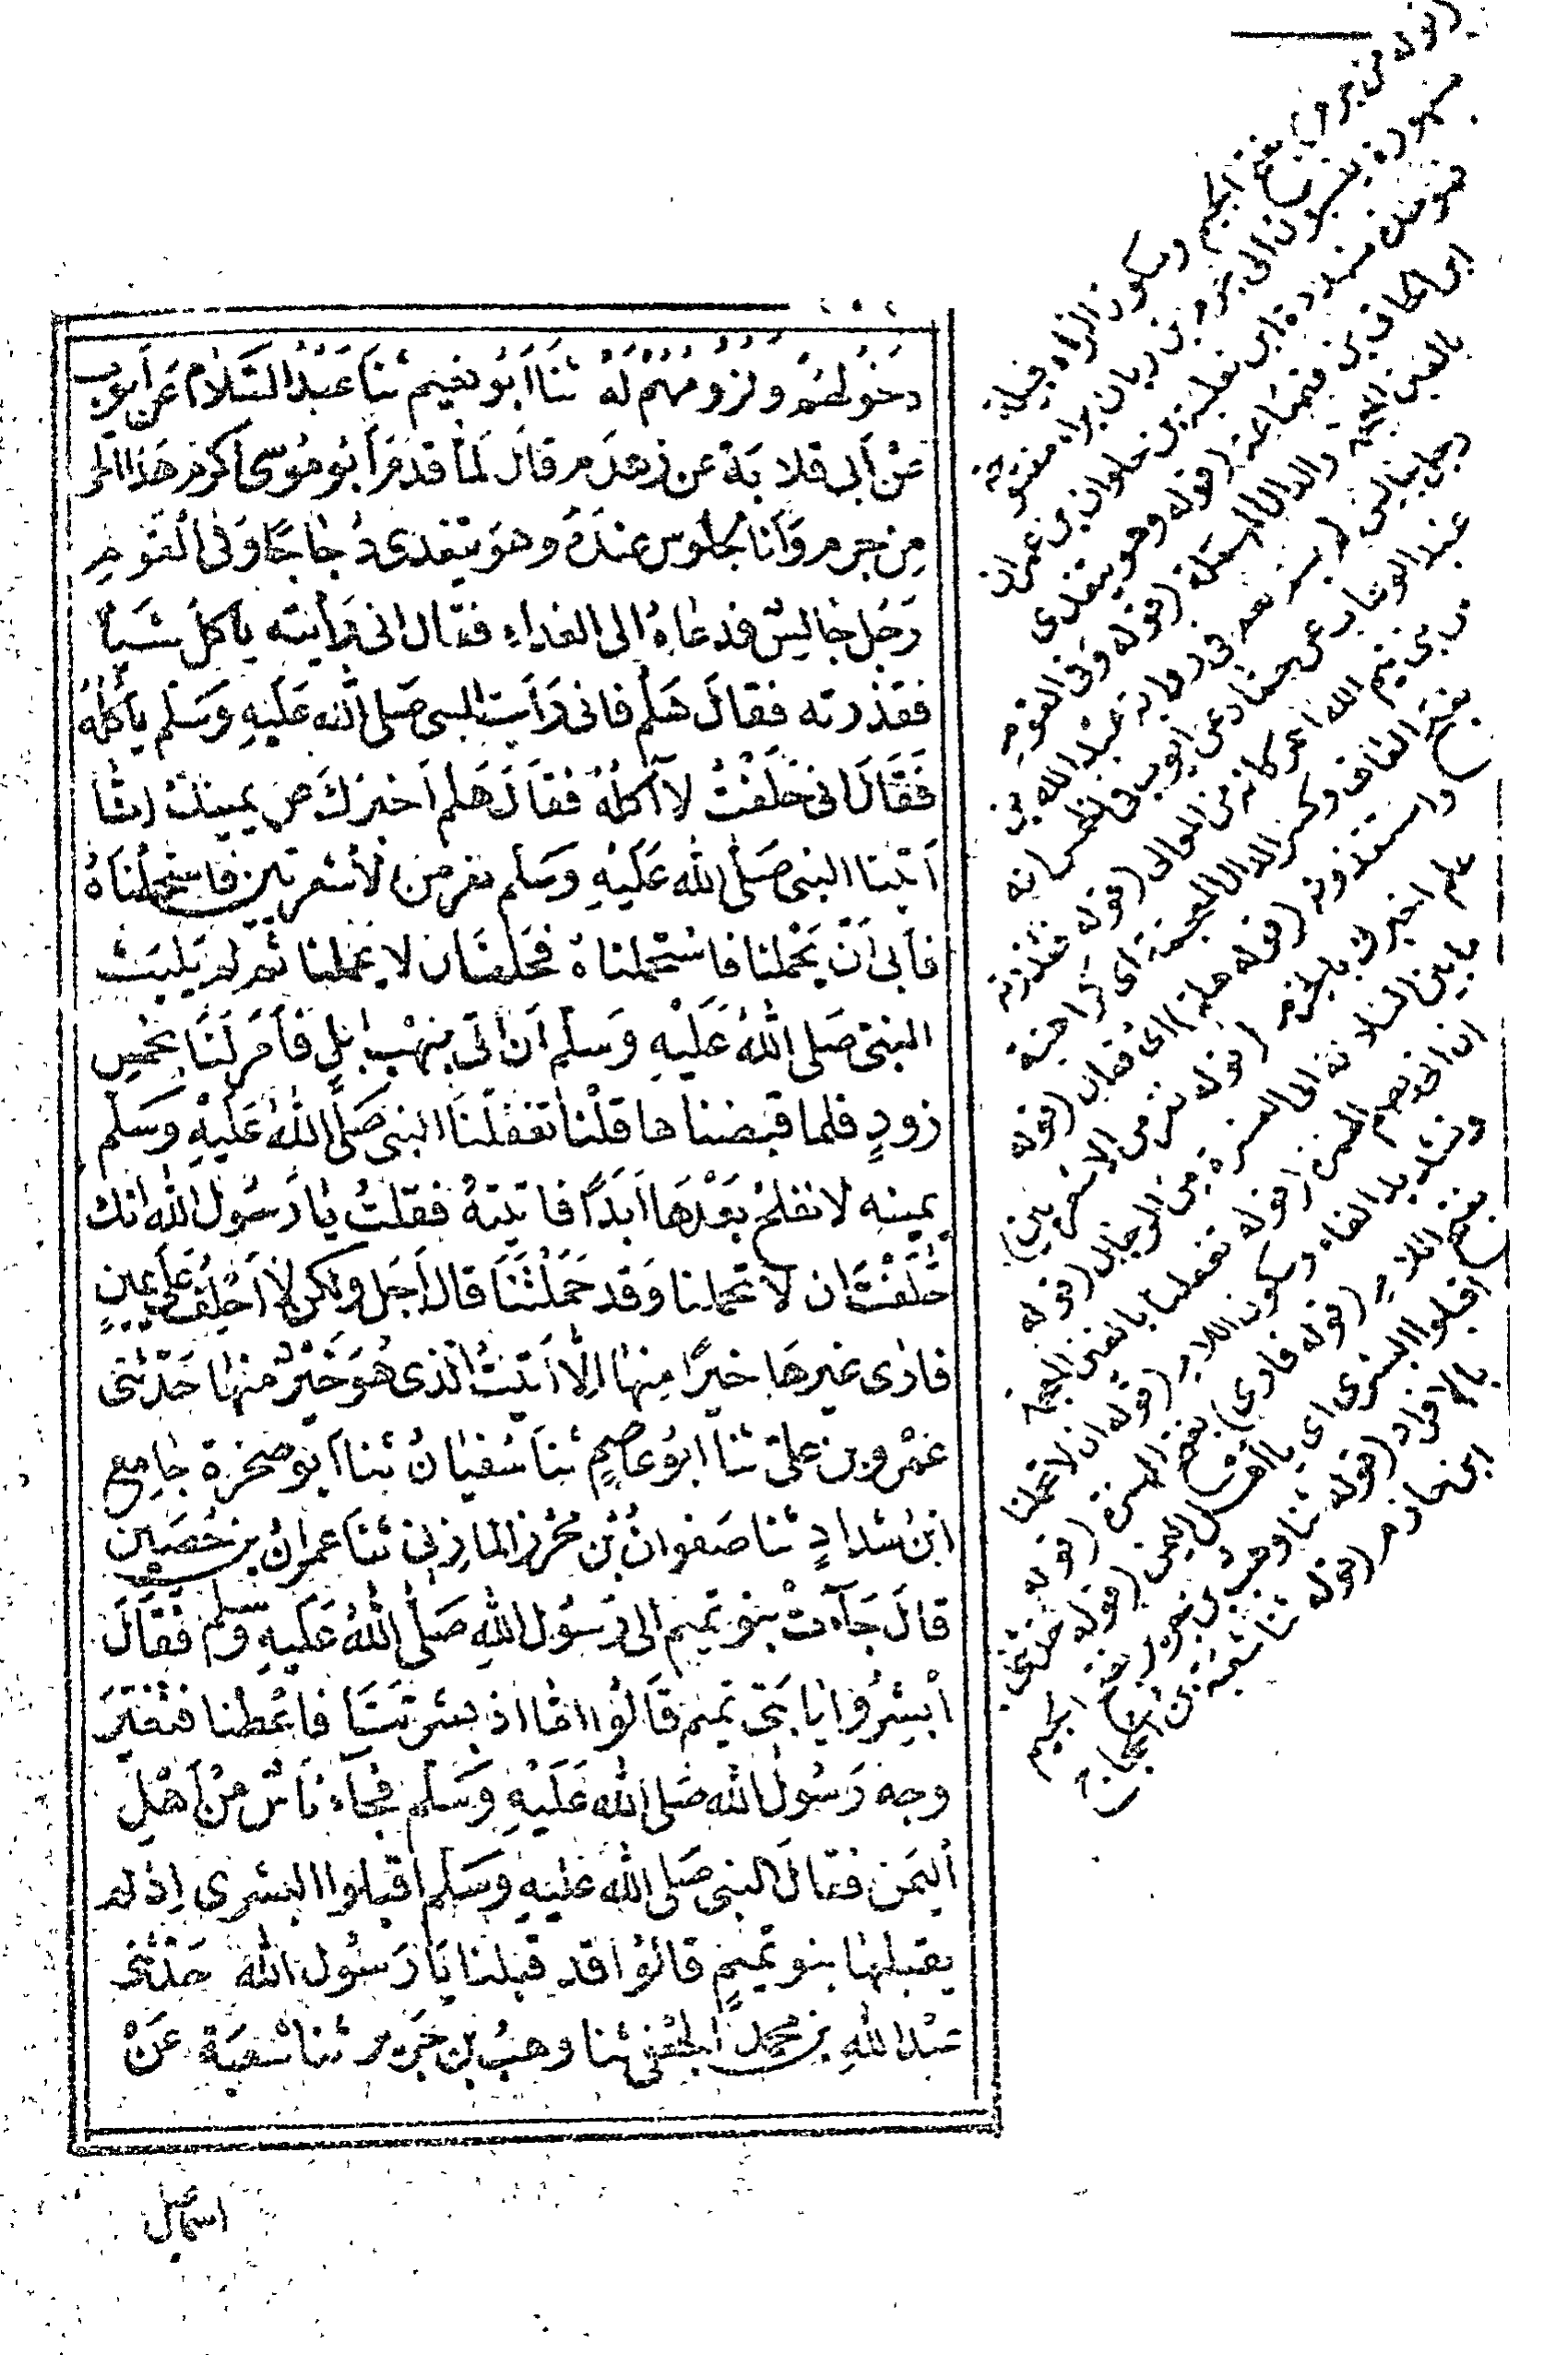 دخولهم ولزومهم له ثنا أبو نعيم ثنا عبد السلام عن أيوب
عن أبي قلابة عن زهدم قال لما قدم أبو موسى أكرم هذا الحي
من جرم وأنا لجلوس عنده وهو يتغدى دجاجا وفي القوم
رجل جالس فدعاه الى الغداء فقال اني رأيته يأكل شيأ
فقذرته فقال هلم فاني رأيت النبي صلى الله عليه وسلم يأكله
فقال اني حلفت لا آكله فقال هلم أخبرك عن يمينك انا
أتينا النبي صلى الله عليه وسلم نفر من الأشعريين فاستحملناه
فأبى أن يحملنا فاستحملناه فحلف ان لا يحملنا ثم لم يلبث
النبي صلى الله عليه وسلم أن أتي بنهب ابل فأمر لنا بخمس
ذود فلما قبضناها قلنا تغفلنا النبي صلى الله عليه وسلم
يمينه لا نفلح بعدها أبدا فأتيته فقلت يا رسول الله انك
حلفت ان لا تحملنا وقد حملتنا قال أجل ولكن لا أحلف على يمين
فأرى غيرها خيرا منها الا أتيت الذي هو خير منها حدثني
عمرو بن علي ثنا ابو عاصم ثنا سفيان ثنا أبو صخرة جامع
ابن شداد ثنا صفوان بن محرز المازني ثنا عمران بن حصين
قال جآءت بنو تميم الى رسول الله صلى الله عليه وسلم فقال
أبشروا يا بني تميم قالوا امّا اذ بشرتنا فأعطنا فتغير
وجه رسول الله صلى الله عليه وسلم فجآء ناس من أهل
اليمن فقال النبي صلى الله عليه وسلم اقبلوا البشرى اذ لم
يقبلها بنو تميم قالوا قد قبلنا يا رسول الله حدثني
عبد الله بن محمد الجعفي ثنا وهب بن جرير ثنا شعبة عن
اسماعيل
(قوله من جرم) بفتح الجيم وسكون الراء قبيلة
مشهورة ينسبون الى جرم بن ربان براء مفتوحة
ابن الحاف بن قضاعة (قوله وهو يتغدى)
بالغين المعجمة والدال المهملة (قوله وفي القوم
بفتح القاف وكسر الذال المعجمة أي كراهية
(قوله هلم) أي تعال (قوله
(قوله نفر من الاشعريين)
ما بين الثلاثة الى العشرة من الرجال (قوله
(قوله تغفلنا بالغين المعجمة
وتشديد الفاء وسكون اللام (قوله ان لا تحملنا
بفتح اللام (قوله فأرى) بفتح الهمزة (قوله
اقبلوا البشرى اي يا أهل اليمن (قوله حدثني
بالافراد (قوله ثنا وهب بن جرير بفتح الجيم
ابن حازم (قوله ثنا شعبة بن الحجاج